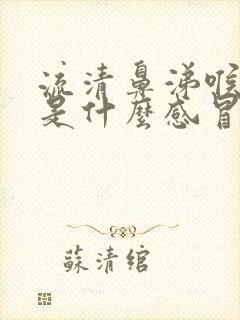 流清鼻涕喉
是什麼感冒
蘇清綰